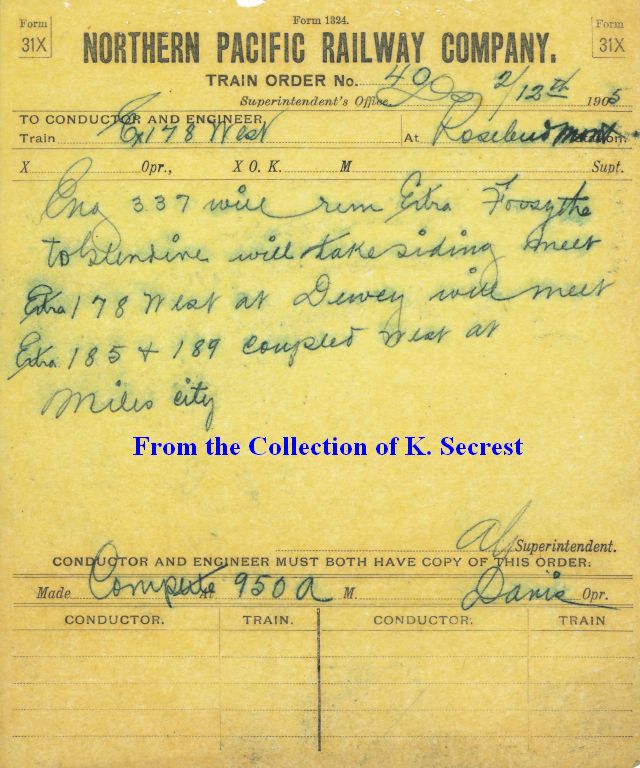 Form 31X
Form 1324.
Form 31X
NORTHERN PACIFIC RAILWAY COMPANY.
TRAIN ORDER No. 40
Superintendent's Office, 2/12th 1905
TO CONDUCTOR AND ENGINEER,
Train Ex 178 West At Rosebud Mont Station.
X Opr., X O. K. M Supt.
Eng 337 will run Extra Forsythe
to Glendive will take siding meet
Extra 178 West at Dewey will meet
Extra 185 + 189 coupled West at
Miles city
From the Collection of K. Secrest
Superintendent.
CONDUCTOR AND ENGINEER MUST BOTH HAVE COPY OF THIS ORDER:
Made Compete At 950 A M. Davis Opr.
CONDUCTOR. TRAIN. CONDUCTOR. TRAIN